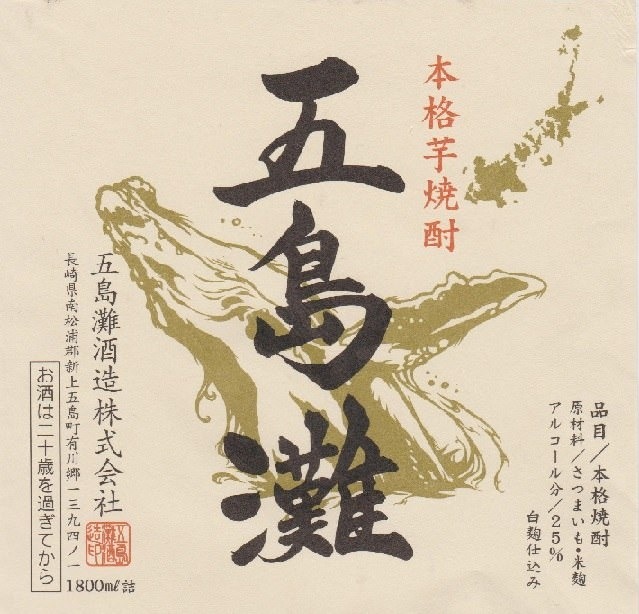 本格芋焼酎
五島灘
品目/本格焼酎
原材料/さつまいも・米麹
アルコール分/25%
白麹仕込み
五島灘酒造株式会社
長崎県南松浦郡新上五島町有川郷一三九四ノ一
お酒は二十歳を過ぎてから
1800ml詰